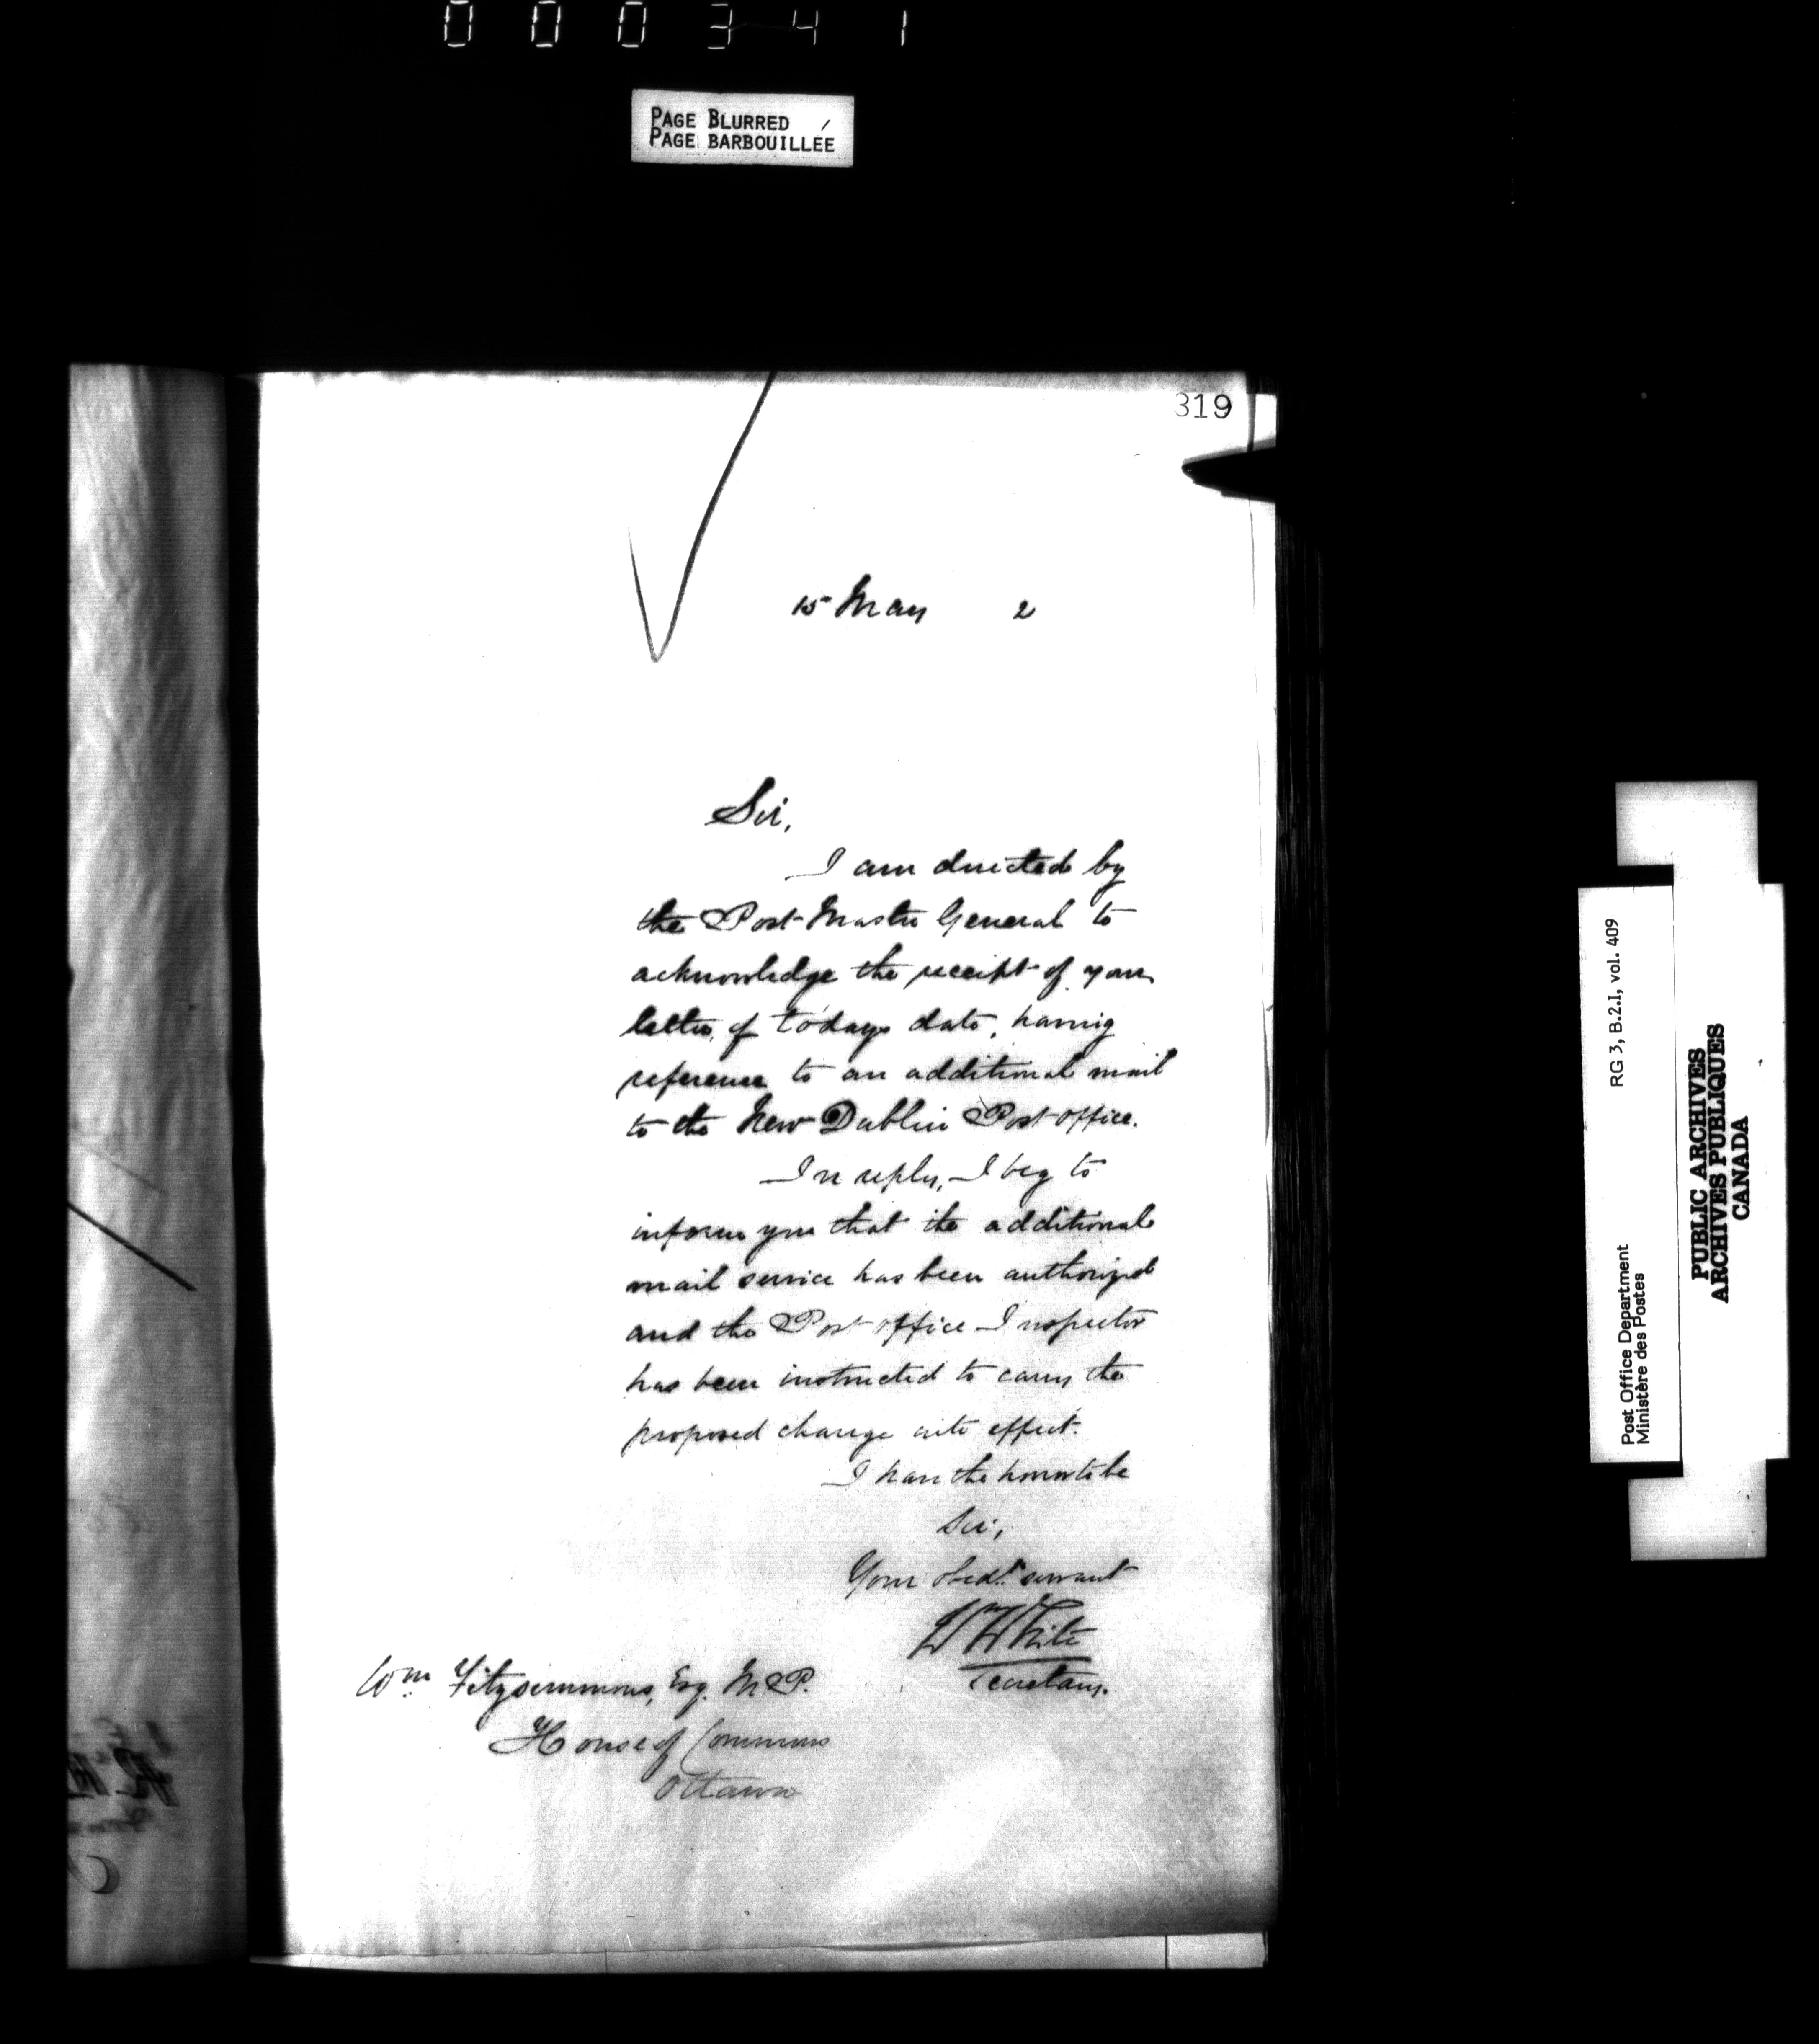 000341
PAGE BLURRED
PAGE BARBOUILLÉE
319
15 May 2
Sir,
I am directed by
the Post Master General to
acknowledge the receipt of your
letter of todays date, having
reference to an additional mail
to the New Dublin Post Office.
In reply, I beg to
inform you that the additional
mail service has been authorized
and the Post Office Inspector
has been instructed to carry the
proposed change into effect.
I have the honor to be
Sir,
Your obedt. servant
Wm White
Secretary.
Wm Fitzsimmons, Esq. M.P.
House of Commons
Ottawa
Post Office Department
Ministère des Postes
RG 3, B.2.I, vol. 409
PUBLIC ARCHIVES
ARCHIVES PUBLIQUES
CANADA